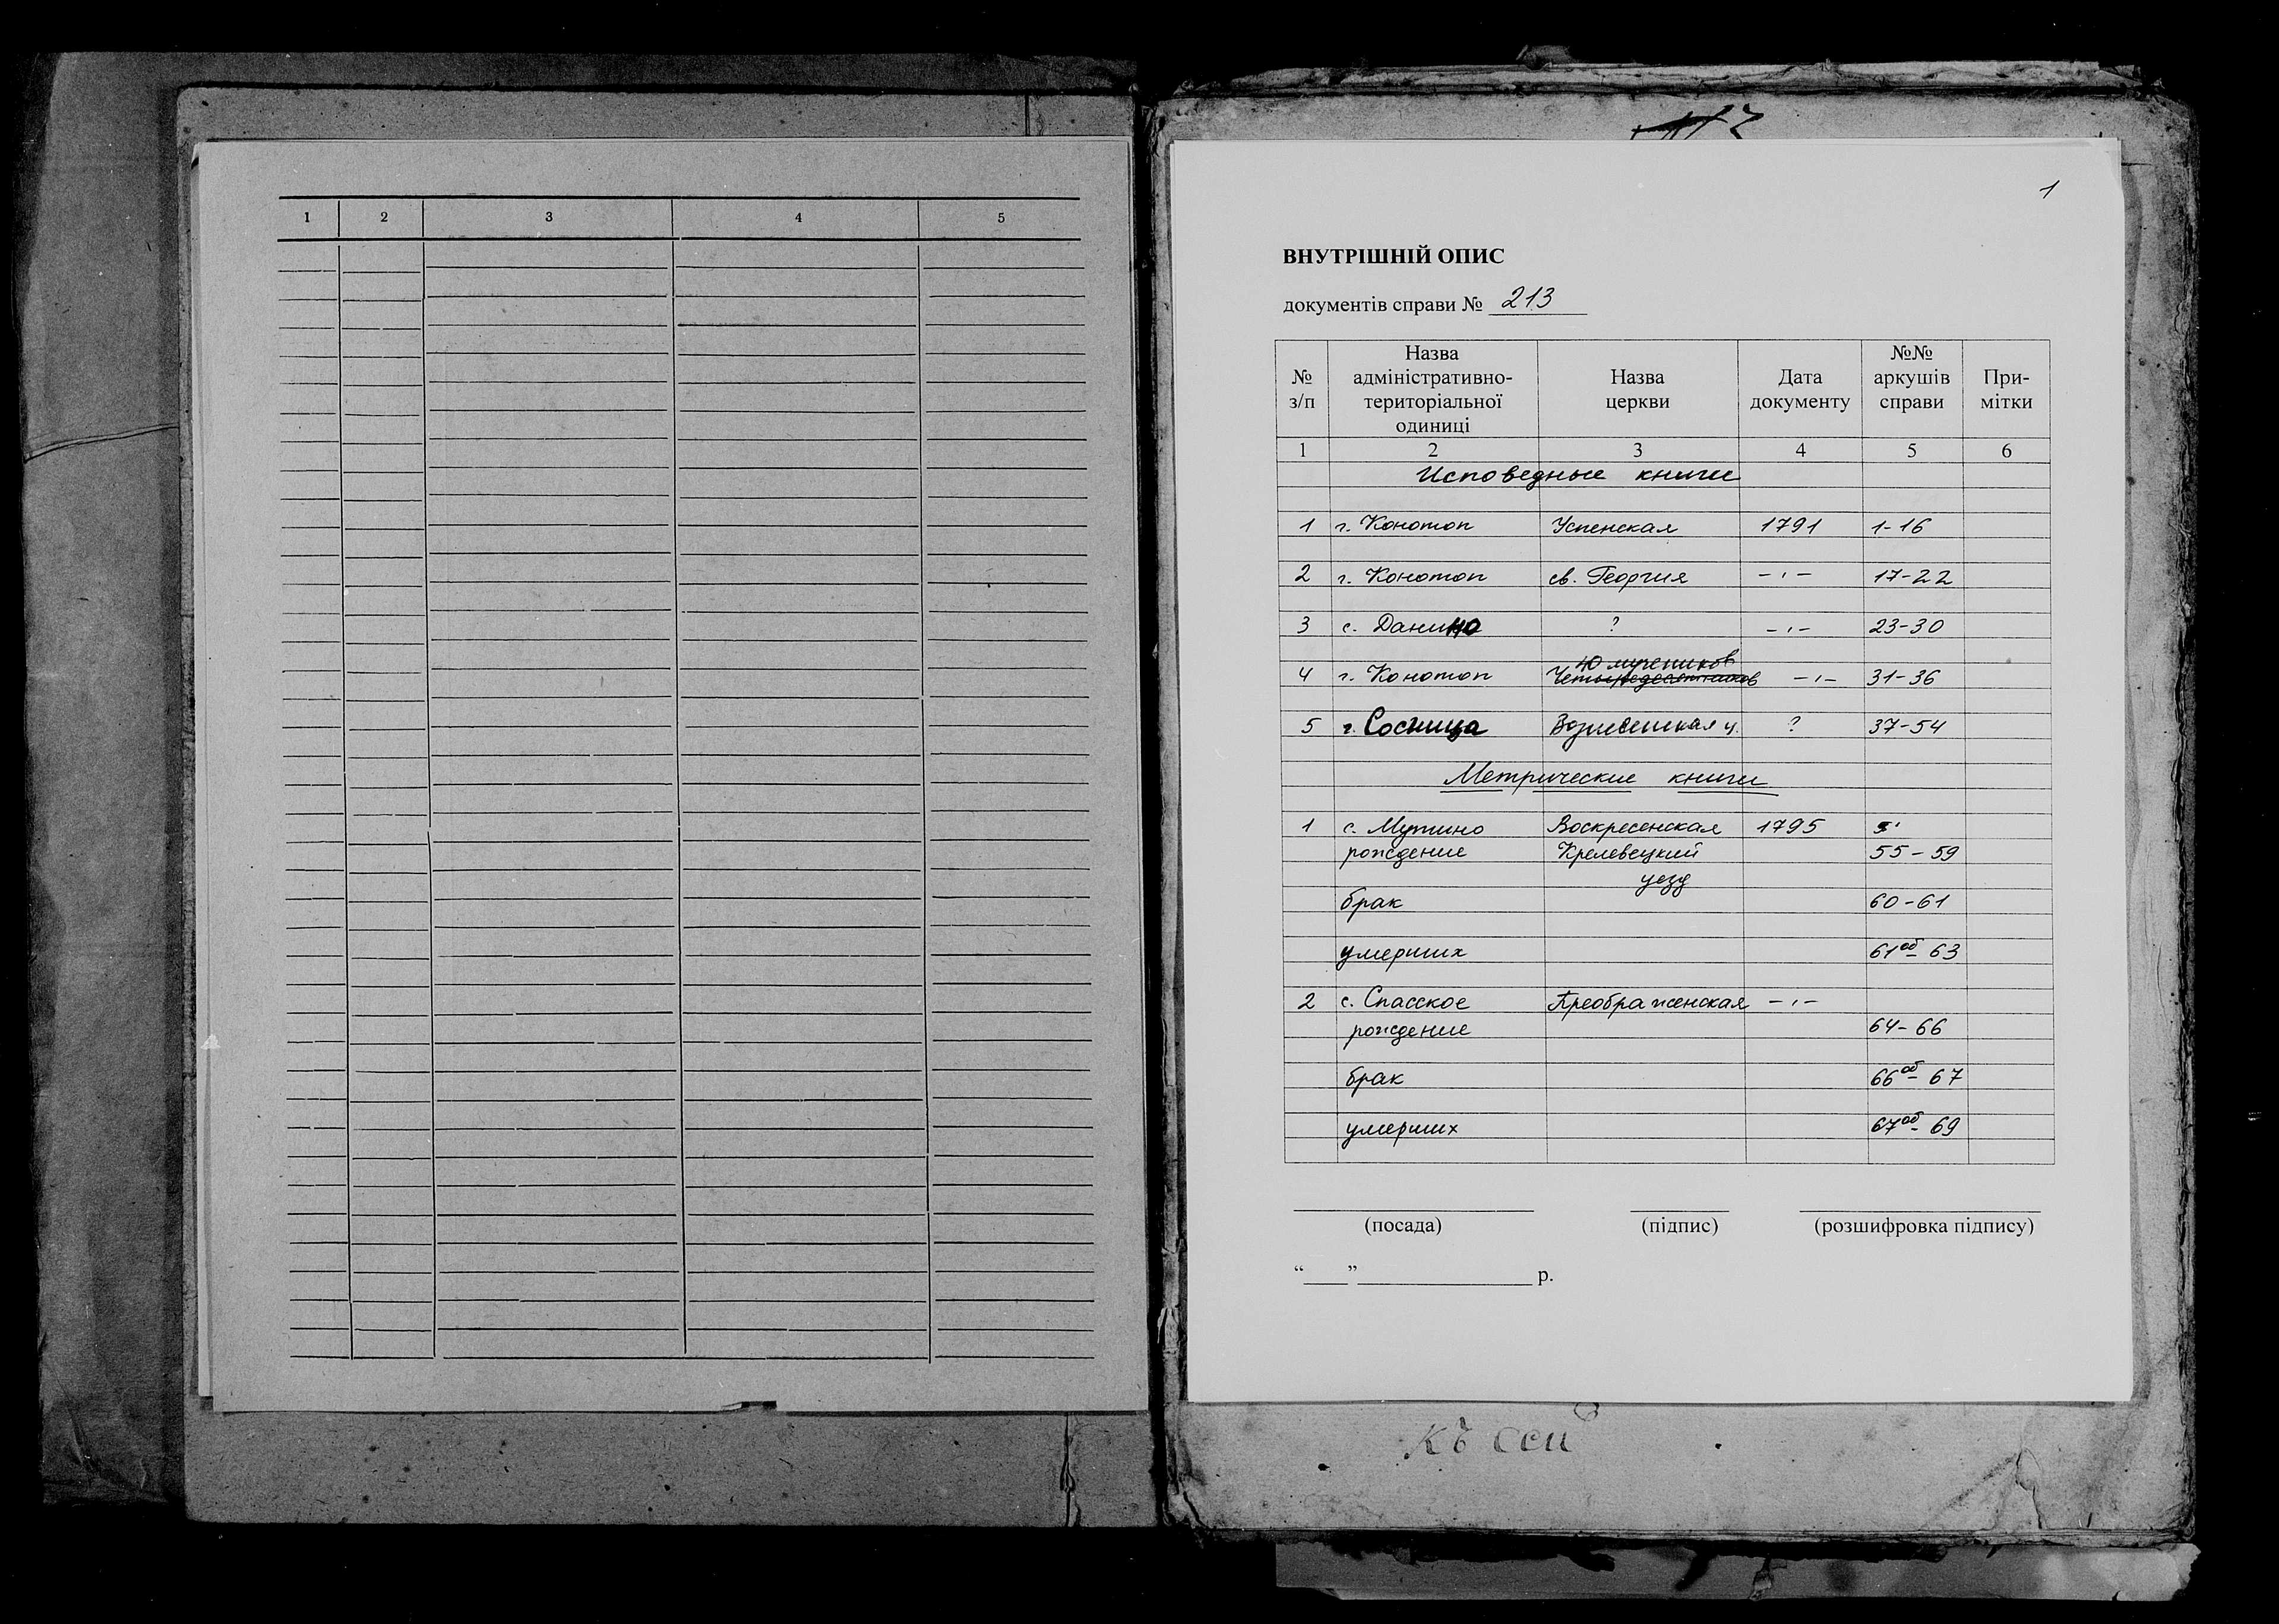 1 2 3 4 5
1
ВНУТРІШНІЙ ОПИС
документів справи № 213
№ з/п
Назва адміністративно-територіальної одиниці
Назва церкви
Дата документу
№№ аркушів справи
При-мітки
1 2 3 4 5 6
Исповедные книги
1 г. Конотоп Успенская 1791 1-16
2 г. Конотоп св. Георгия -"- 17-22
3 с. Данино ? -"- 23-30
40 мучеников
4 г. Конотоп -"- 31-36
5 г. Сосница Вознесенская ц. ? 37-54
Метрические книги
1 с. Мутино Воскресенская 1795
рождение Кролевецкий 55-59
уезд
брак 60-61
умерших 61об- 63
2 с. Спасское Преображенская -"-
рождение 64-66
брак 66об- 67
умерших 67об- 69
(посада) (підпис) (розшифровка підпису)
“____”________________ р.
КЪ